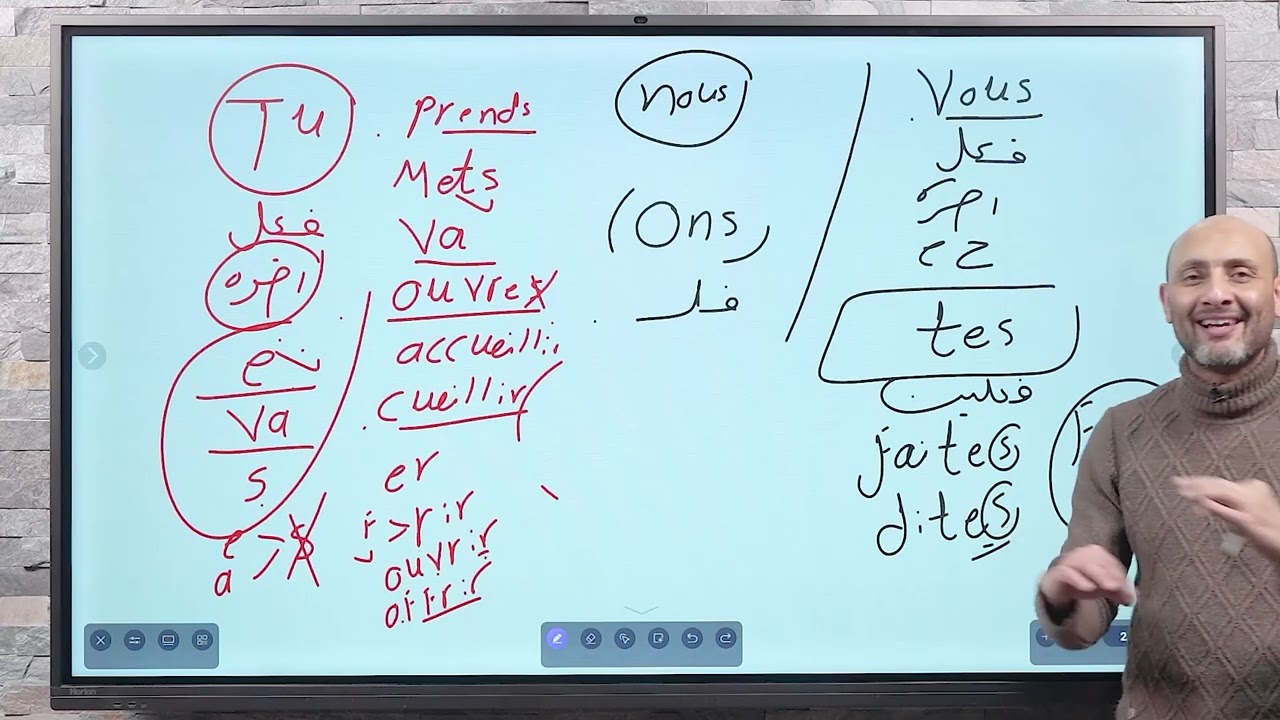 Tu
فعل
اخره
e
Va
s
e > s
a
Prends
Mets
Va
ouvres
accueilli
cueillir
er
f > rir
ouvrir
offrir
nous
(Ons)
فعل
Vous
فعل
اخره
ez
tes
فعلين
faites
dites
Horion